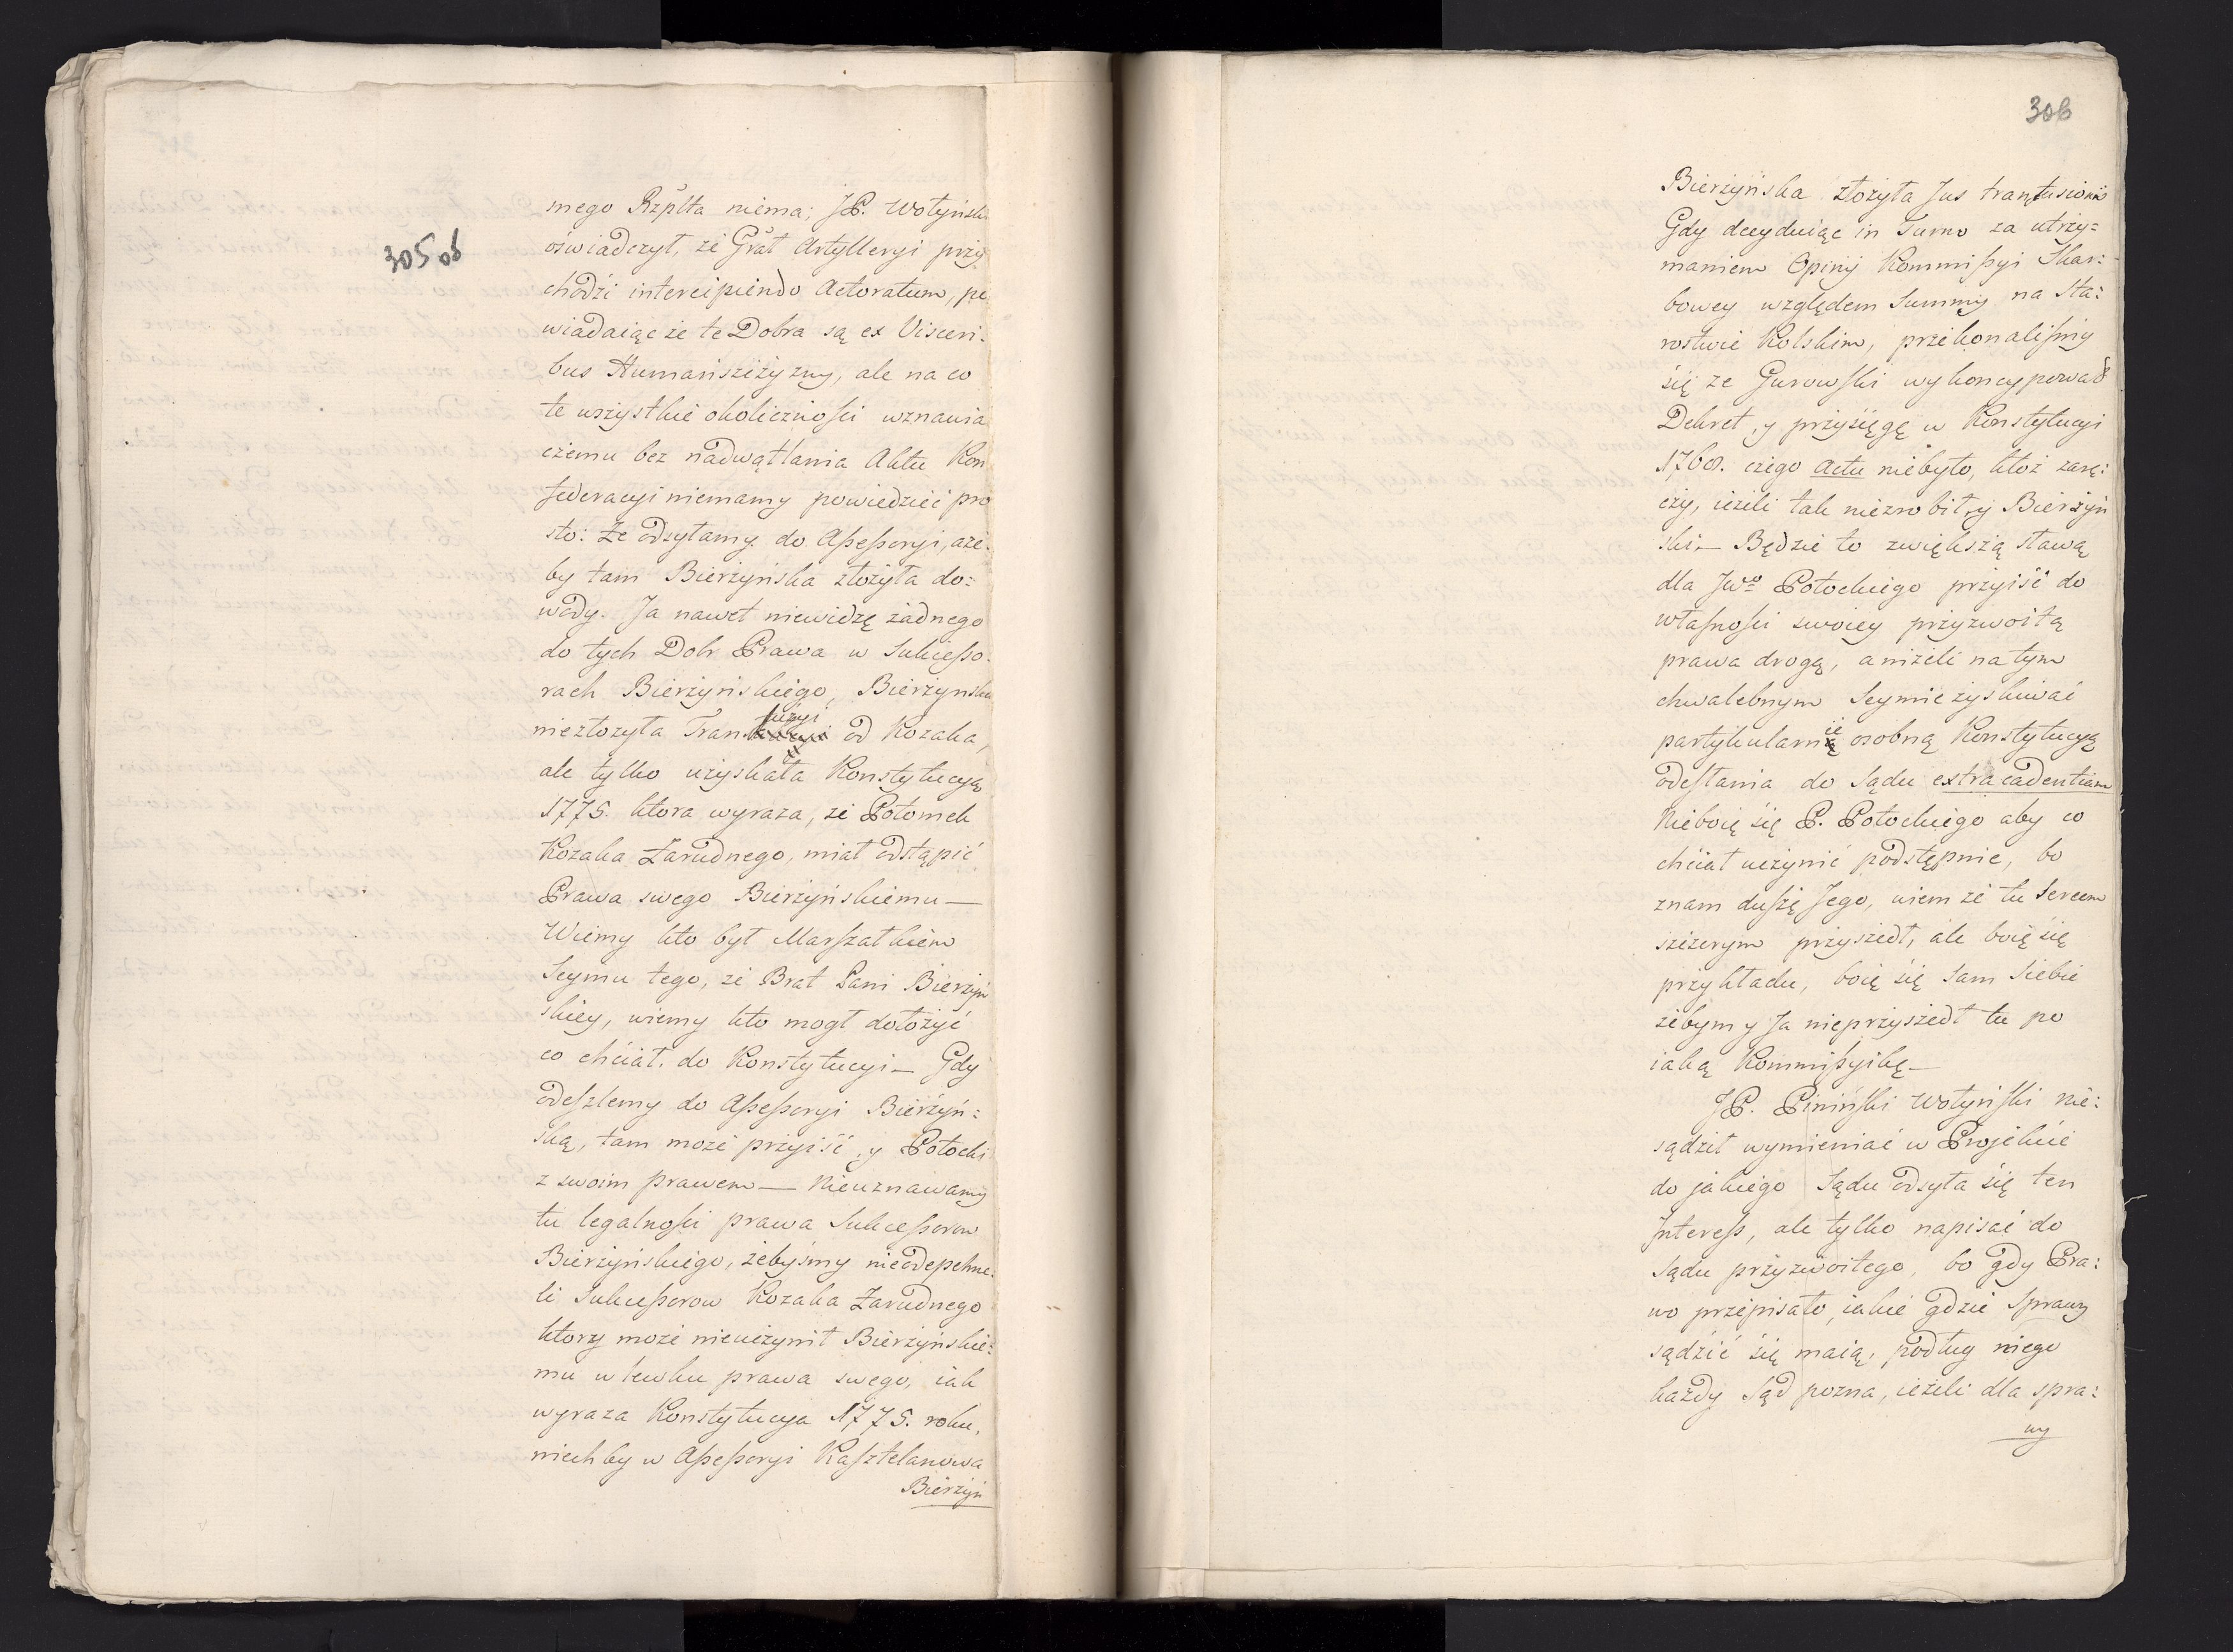 305 ob
snego Rzplta niema; JP. Wołyński
oświadczył, że Grał Artylleryi przy
chodzi intercipiendo Actoratum, po
wiadaiąc że te Dobra są ex Visceri-
bus Humańszczyzny, ale na co
te wszystkie okoliczności wznawia
czemu bez nadwątlania Aktu Kon
federacyi niemamy powiedzieć pro
sto: Że odsyłamy do Assessoryi, aże-
by tam Bierzyńska złożyła do=
wody. Ja nawet niewidzę żadnego
do tych Dobr Prawa w Sukcesso-
rach Bierzyńskiego, Bierzynska
niezłożyła Tranfuzyi od Kozaka,
ale tylko uzyskała Konstytucyą
1775. ktora wyraża, że Potomek
Kozaka Żarudnego, miał odstąpić
Prawa swego Bierzyńskiemu —
Wiemy kto był Marszałkiem
Seymu tego, że Brat Pani Bierzyń
skiey, wiemy kto mogł dołożyć
co chciał. do Konstytucyi — Gdy
odeszlemy do Assessoryi Bierzyń=
ską, tam może przyiść, y Potocki
z swoim prawem — Nieuznawaymy
tu legalności prawa Sukcessorow
Bierzyńskiego, żebyśmy nieodepchne-
li Sukcessorow Kozaka Żarudnego
ktory może nieuczynił Bierzyńskie=
mu wlewku prawa swego, iak
wyraża Konstytucya 1775. roku,
niechby w Assessoryi Kasztelanowa
Bierzyń
306
Bierzyńska złożyła Jus tranfusionis
Gdy decyduiąc in Turno za utrzy=
maniem Opinij Kommissyi Skar=
bowey względem Summy na Sta=
rostwie Kolskim, przekonaliśmy
się że Gurowski wykoncypował
Dekret, y przysięgę w Konstytucyi
1768. czego Actu niebyło, ktoż zarę=
czy, ieżeli tak niezrobił, y Bierzyń
ski. — Będzie to zwiększą sławą
dla Jwo Potockiego przyiść do
własności swoiey przyzwoitą
prawa drogą, a niżeli na tym
chwalebnym Seymie zyskiwać
partykularnie osobną Konstytucyą
odesłania do Sądu extra cadentiam
Nieboię się P. Potockiego aby co
chciał uczynić podstępnie, bo
znam duszę Jego, wiem że tu Sercem
szczerym przyszedł, ale boię się
przykładu, boię się sam Siebie
żebym y Ja nieprzyszedł tu po
iaką Kommissyikę —
JP. Pininski Wołyński nie=
sądził wymieniać w Projekcie
do jakiego Sądu odsyła się ten
Interess, ale tylko napisać do
Sądu przyzwoitego, bo gdy Pra=
wo przepisało, iakie gdzie Sprawy
sądzić się maią, podług niego
każdy Sąd pozna, ieżeli dla spra=
wy